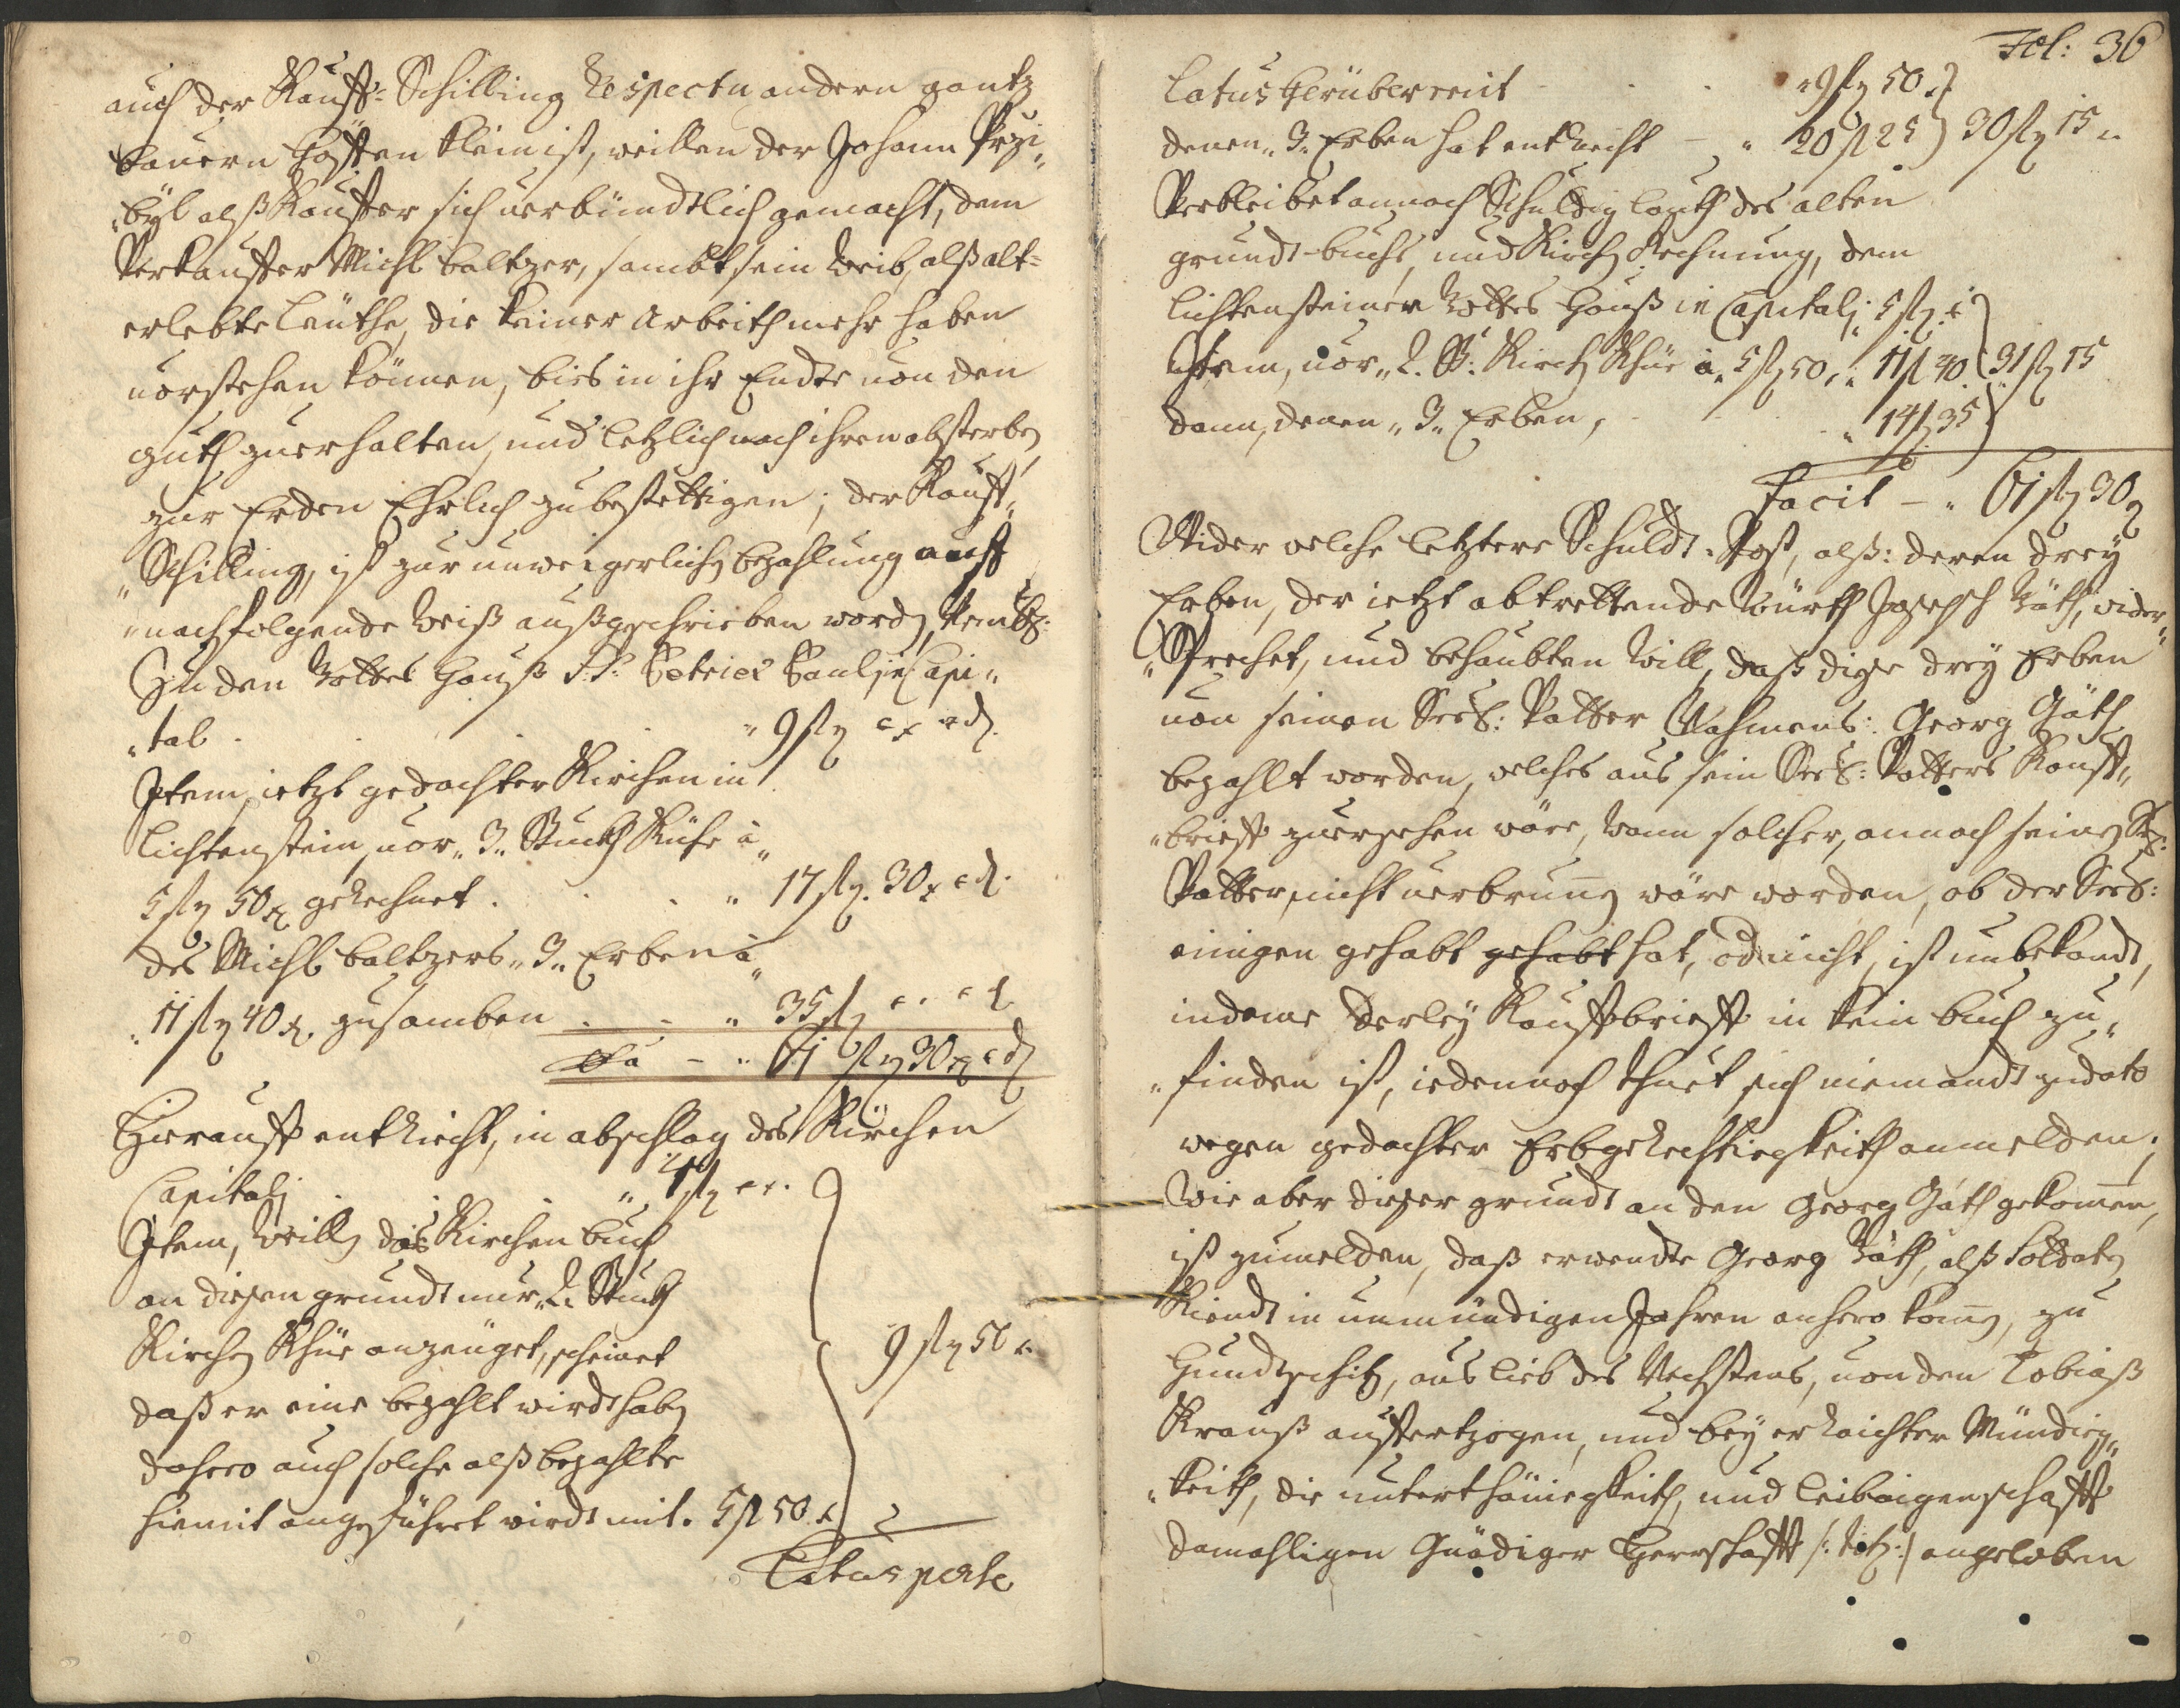 auch der Kauff: Schilling Respectu andern gantz
bauern Höffen klein ist, weillen der Johann Przi„
„byl alß Kauffer sich verbündtlich gemacht, dem
Verkauffer Michl Baltzer, sambt sein Weib, alß alt=
erlebte Leuthe, die keiner Arbeith mehr haben
vorstehen können, bies in ihr Endte von den
guth zuerhalten, und letzlich nach ihren absterben
zur Erden Ehrlich zu bestettigen; der Kauff„
„Schilling, ist zur unweigerlichen bezahlung auff
„nachfolgende Weiß außgeschrieben worden,
Zu den Gottes Hauß S:S: Petri et Pauli in Capi„
„tal . . . „ 9 fl x d.
Item, ietzt gedachter Kirchen in
Lichtenstein, vor „3„ Stuckh Kühe â
5 fl 50 x gerechnet . . . „ 17 fl. 30 x d.
des Michl Baltzers „3„ Erben â
„11 fl 40 x. zusamben . . „ 35 fl
— „ 61 fl 30 x d
Hierauff entricht, in abschlag des Kirchen
Capitali . . . „ 4 fl
Item, Weillen das Kirchen buch
an diesen grundt nur „2„ Stuckh
Kirchen Khüe anzeuget, scheinet
daß er eine bezahlt wirdt haben
dahero auch solche alß bezahlte
hiemit angeführet wirdt mit. 5 fl 50 x } 9 fl 50 x
Latus perse
Fol: 36
Latus herüber mit . . . „ 9 fl 50 x
denen „3„ Erben hat entricht — „ 20 fl 25 } 30 fl 15 „
Verbleibet annoch Schuldig lauth des alten
grundt-buchs, und Kirchen Rechnung, dem
Lichtensteiner Gottes Hauß in Capitali „ 5 fl
Item, vor „2. St: Kirchen Khüe â „5 fl 50 „ „ 11 fl 40 } 31 fl 15
dann, denen „3„ Erben, . . „ 14 fl 35
Facit — „ 61 fl 30
Wider welche letztere Schuldt-Post, alß: deren drey
Erben, der ietzt abtrettende Würth Joseph Gäth, wider„
„Sprechet, und behaubten Will, daß diese drey Erben
von seinen Seel: Vatter Nahmens: Georg Gäth
bezahlt worden, welches aus sein Seel: Vatters Kauff„
„brieff zuersehen wäre, wann solcher, annoch seinen Seel:
Vatter, nicht verbrunen wäre worden, ob der Seel:
einigen gehabt gehabt hat, oder nicht, ist unbekandt,
indeme derley Kauffbrieff in kein buch zu„
„finden ist, iedennoch thuet sich niemandt zu dato
wegen gedachter Erbgerechtiegkeith anmelden;
Wie aber dieser grundt an den Georg Gäth gekomen,
ist zumelden, daß erwendte Georg Gäth, alß Soldaten
Kiendt in unmündigen Jahren anhero komen, zu
Hundtschitz, aus lieb des Nechstens, von den Tobiaß
Krauß aufferzogen, und bey erraichter Mündieg„
„keith, die unterthäniegkeith, und Leibaigenschafft
damahligen Gnädiger Herrschafft /: :/ angeloben